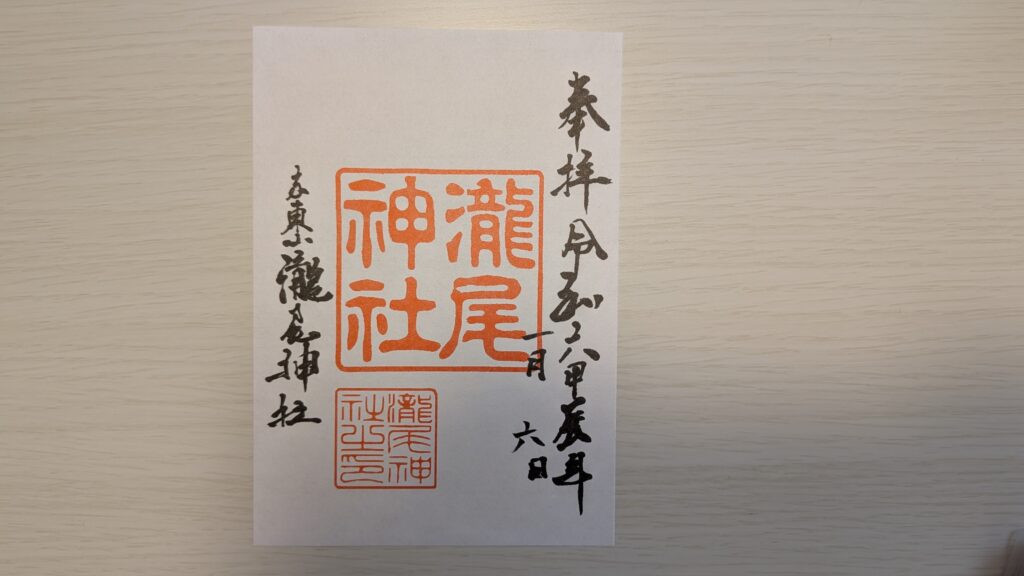 奉拝 令和六甲辰年
一月 六日
瀧尾
神社
瀧尾神
社之印
京東山 瀧尾神社